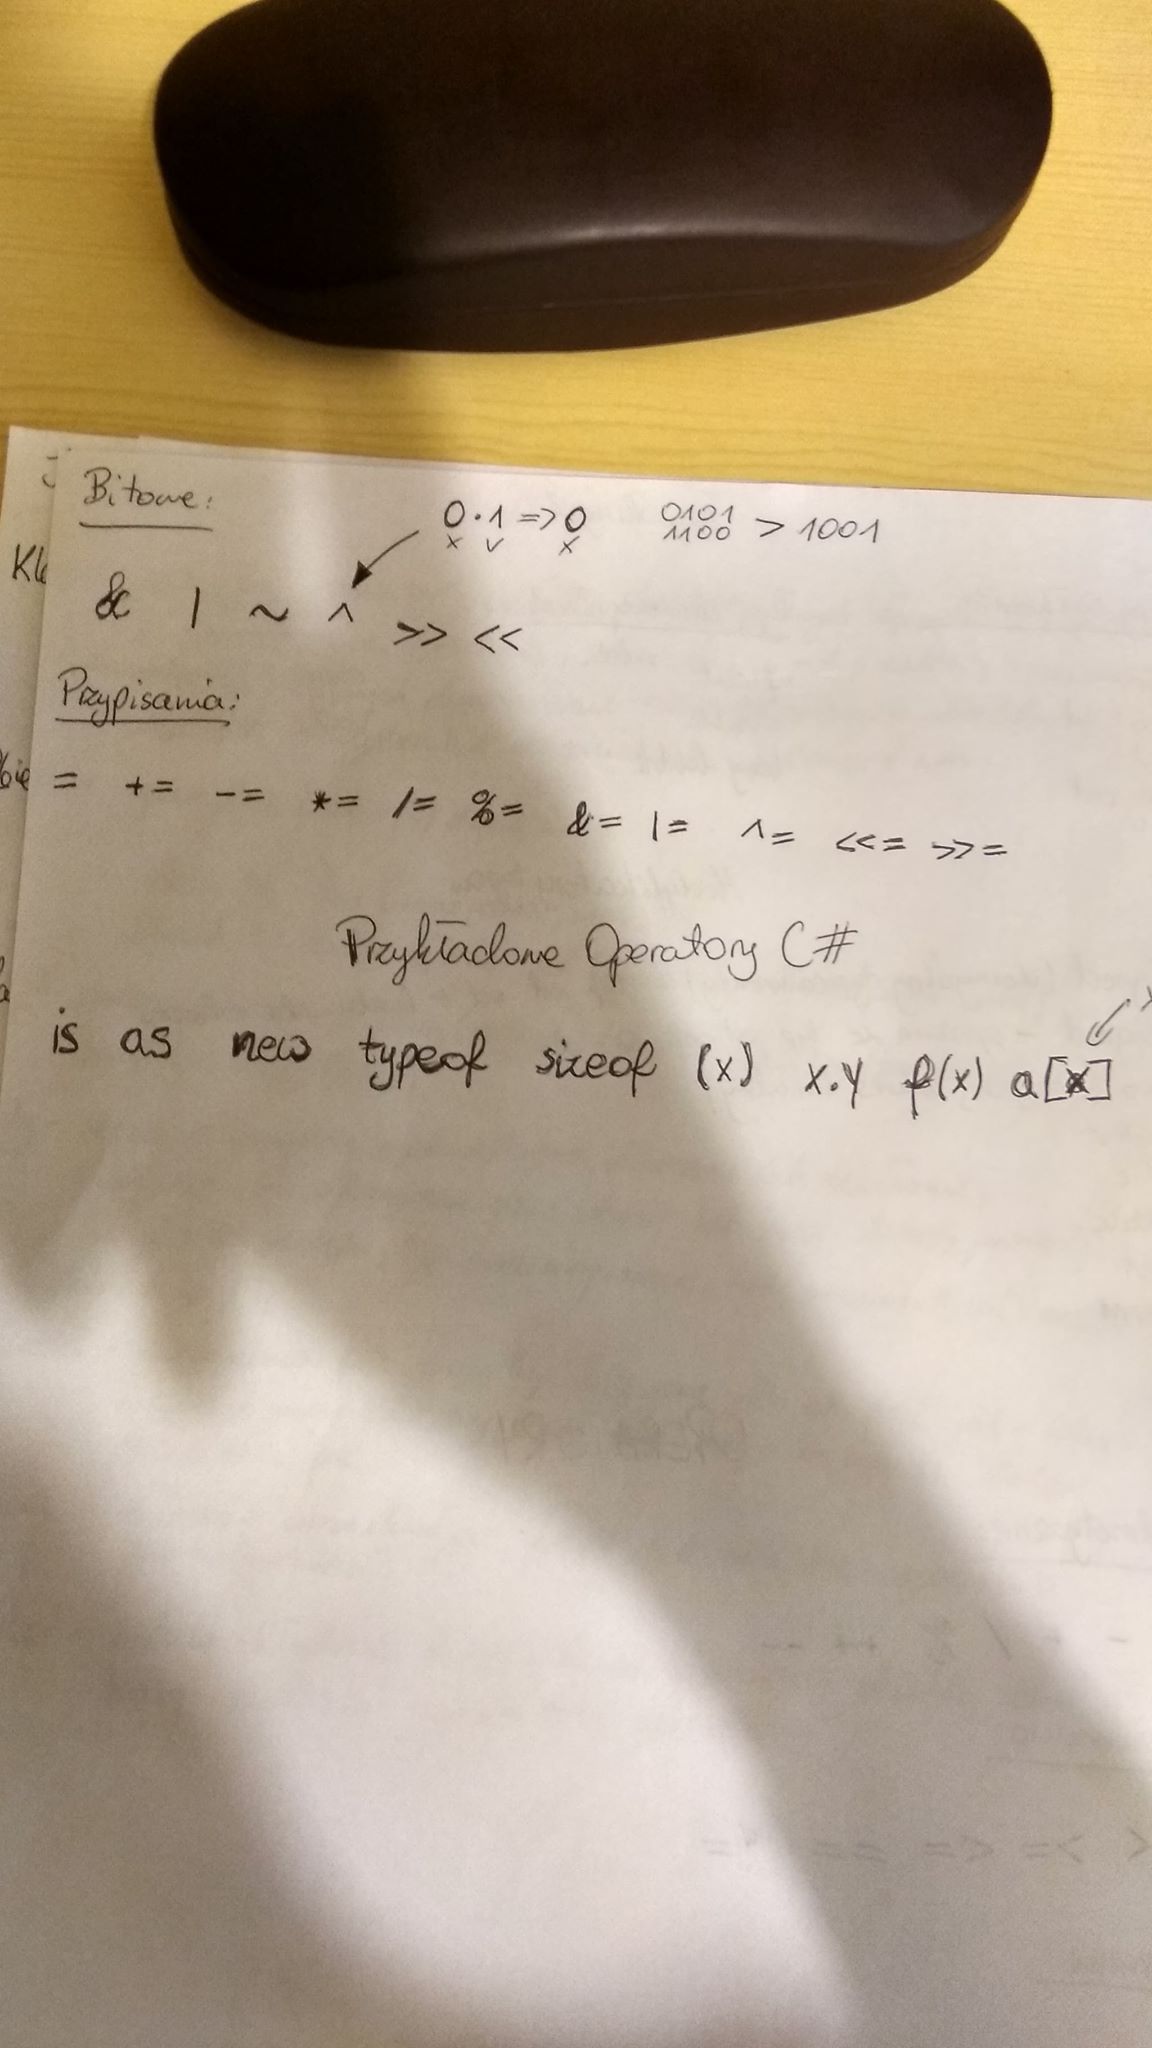 Bitowe:
0·1 => 0
x v x
0101
1100 > 1001
& | ~ ^ >> <<
Przypisania:
= += -= *= /= %= &= |= ^= <<= >>=
Przykładowe Operatory C#
is as new typeof sizeof (x) x.y f(x) a[x]
x